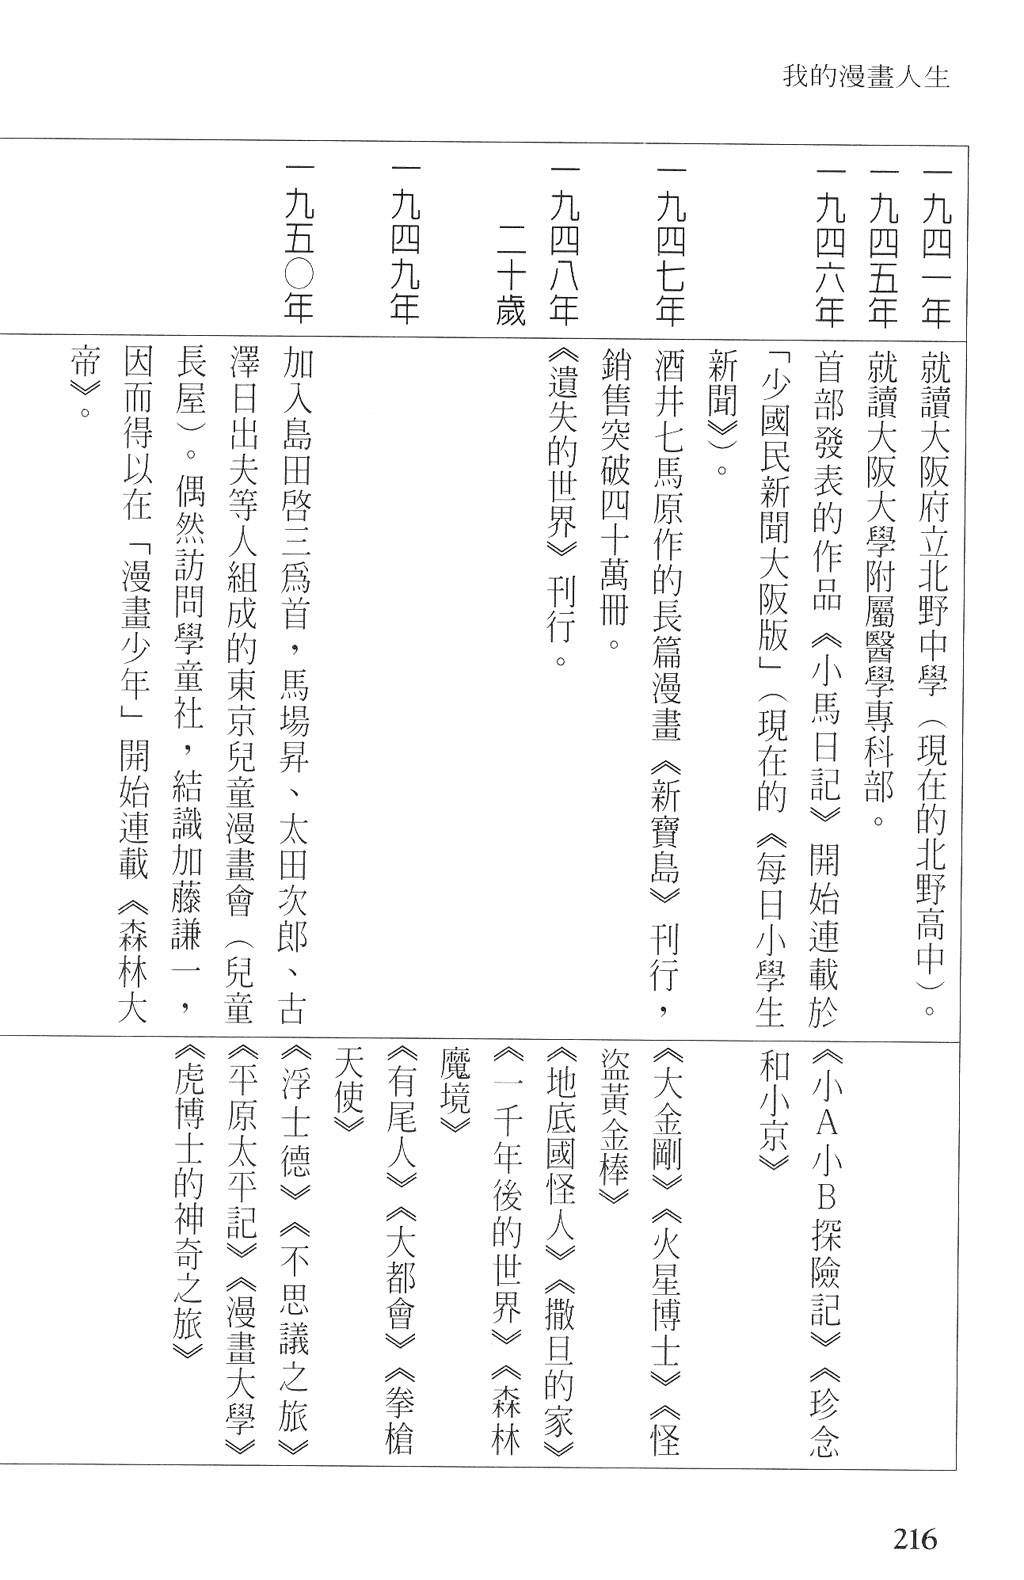 我的漫畫人生
一九四一年
就讀大阪府立北野中學（現在的北野高中）。
一九四五年
就讀大阪大學附屬醫學專科部。
一九四六年
首部發表的作品《小馬日記》開始連載於
「少國民新聞大阪版」（現在的《每日小學生
新聞》）。
《小A小B探險記》《珍念
和小京》
一九四七年
酒井七馬原作的長篇漫畫《新寶島》刊行，
銷售突破四十萬冊。
《大金剛》《火星博士》《怪
盜黃金棒》
一九四八年
二十歲
《遺失的世界》刊行。
《地底國怪人》《撒旦的家》
《一千年後的世界》《森林
魔境》
一九四九年
《有尾人》《大都會》《拳槍
天使》
一九五〇年
加入島田啓三爲首，馬場昇、太田次郎、古
澤日出夫等人組成的東京兒童漫畫會（兒童
長屋）。偶然訪問學童社，結識加藤謙一，
因而得以在「漫畫少年」開始連載《森林大
帝》。
《浮士德》《不思議之旅》
《平原太平記》《漫畫大學》
《虎博士的神奇之旅》
216